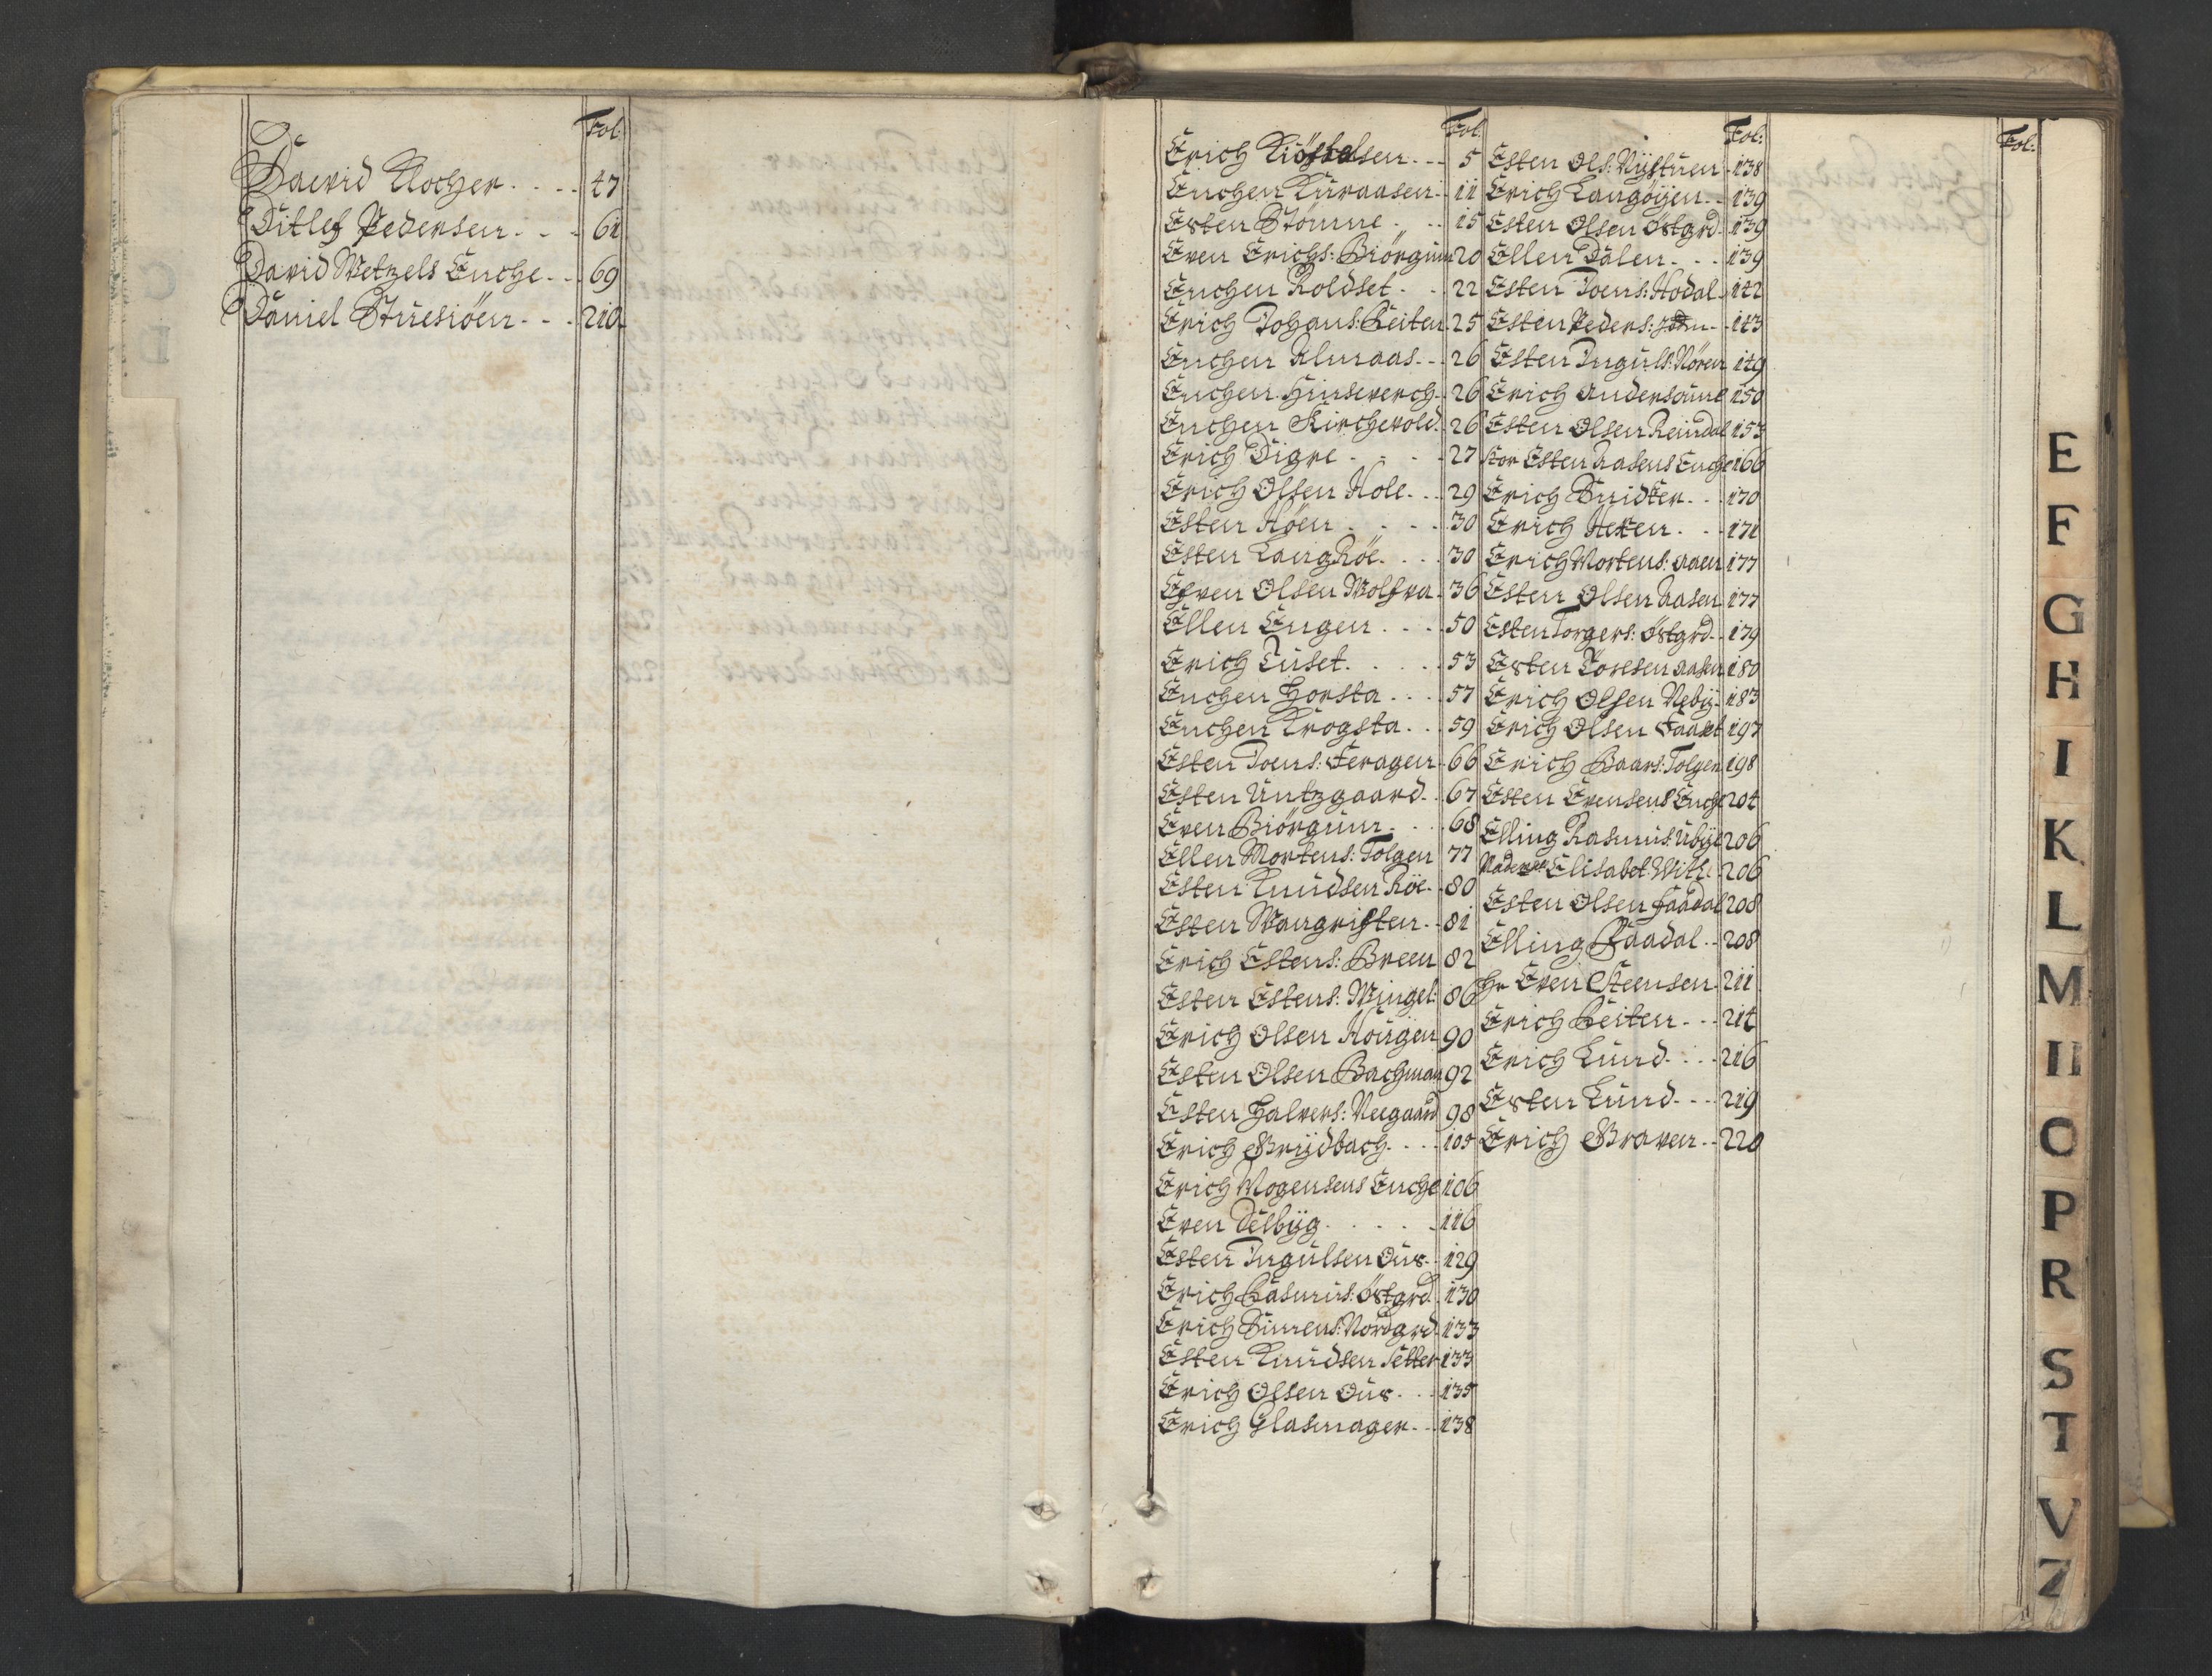 Fol:
Dawid Klocher 47
Ditlef Pedersen 61
David Wetzels Enche 69
Daniel Stuesiöen 210
Fol:
Erich 5
Enchen Kuraasen 11
Esten Stömne 15
Even Erichs: Biörgum 20
Enchen Roldset 22
Erich Johans: Feiten 25
Enchen Almaas 26
Enchen Hinseverch 26
Enchen Kirchevold 26
Erich Digre 27
Erich Olsen Hole 29
Esten Höen 30
Esten LangRöe 30
Even Olsen 36
Ellen Engen 50
Erich Luset 53
Enchen Horsta 57
Enchen Krogsta 59
Esten Joens: Feragen 66
Esten Untzgaard 67
Even Biörgum 68
Ellen Mortens: Tolgen 77
Esten Knudsen Röe 80
Esten Mangristen 81
Erich Estens: Breen 82
Esten Estens: Wingel: 86
Erich Olsen Housgen 90
Esten Olsen Bachman 92
Esten Halvers: Neegaard 98
Erich Brydbach 105
Erich Mogensens Enche 106
Even Selbyg 116
Esten Ingulsen Ous 129
Erich Rasmus: Östgrd 130
Erich Simens: Nordgrd 133
Esten Knudsen Setter 133
Erich Olsen Ous 135
Erich Glasmager 138
Fol:
Esten Ols: Nystuen 138
Erich Langöyen 139
Esten Olsen Östgrd 139
Ellen Dalen 139
Esten Joens: Hodal 142
Esten Peders: 143
Esten Inguls: Nören 149
Erich 150
Esten Olsen Reindal 153
Stor Esten Aasens Enche 166
Erich Snidker 170
Erich 171
Erich Mortens: Aaen 177
Esten Olsen Aasen 177
Esten Torgers: Östgrd 179
Esten Joresen Aasen 180
Erich Olsen Neby 183
Erich Olsen Faaset 197
Erich Baars: Tolgen 198
Esten Evensens Enche 204
Elling Rasmus: Ubye 206
Elisabet With 206
Esten Olsen Faadal 208
Elling Faadal 208
Hr Even Steensen 211
Erich Feiten 214
Erich Lund 216
Esten Lund 219
Erich Braven 220
Fol:
E
F
G
H
I
K
L
M
N
O
P
R
S
T
V
Z